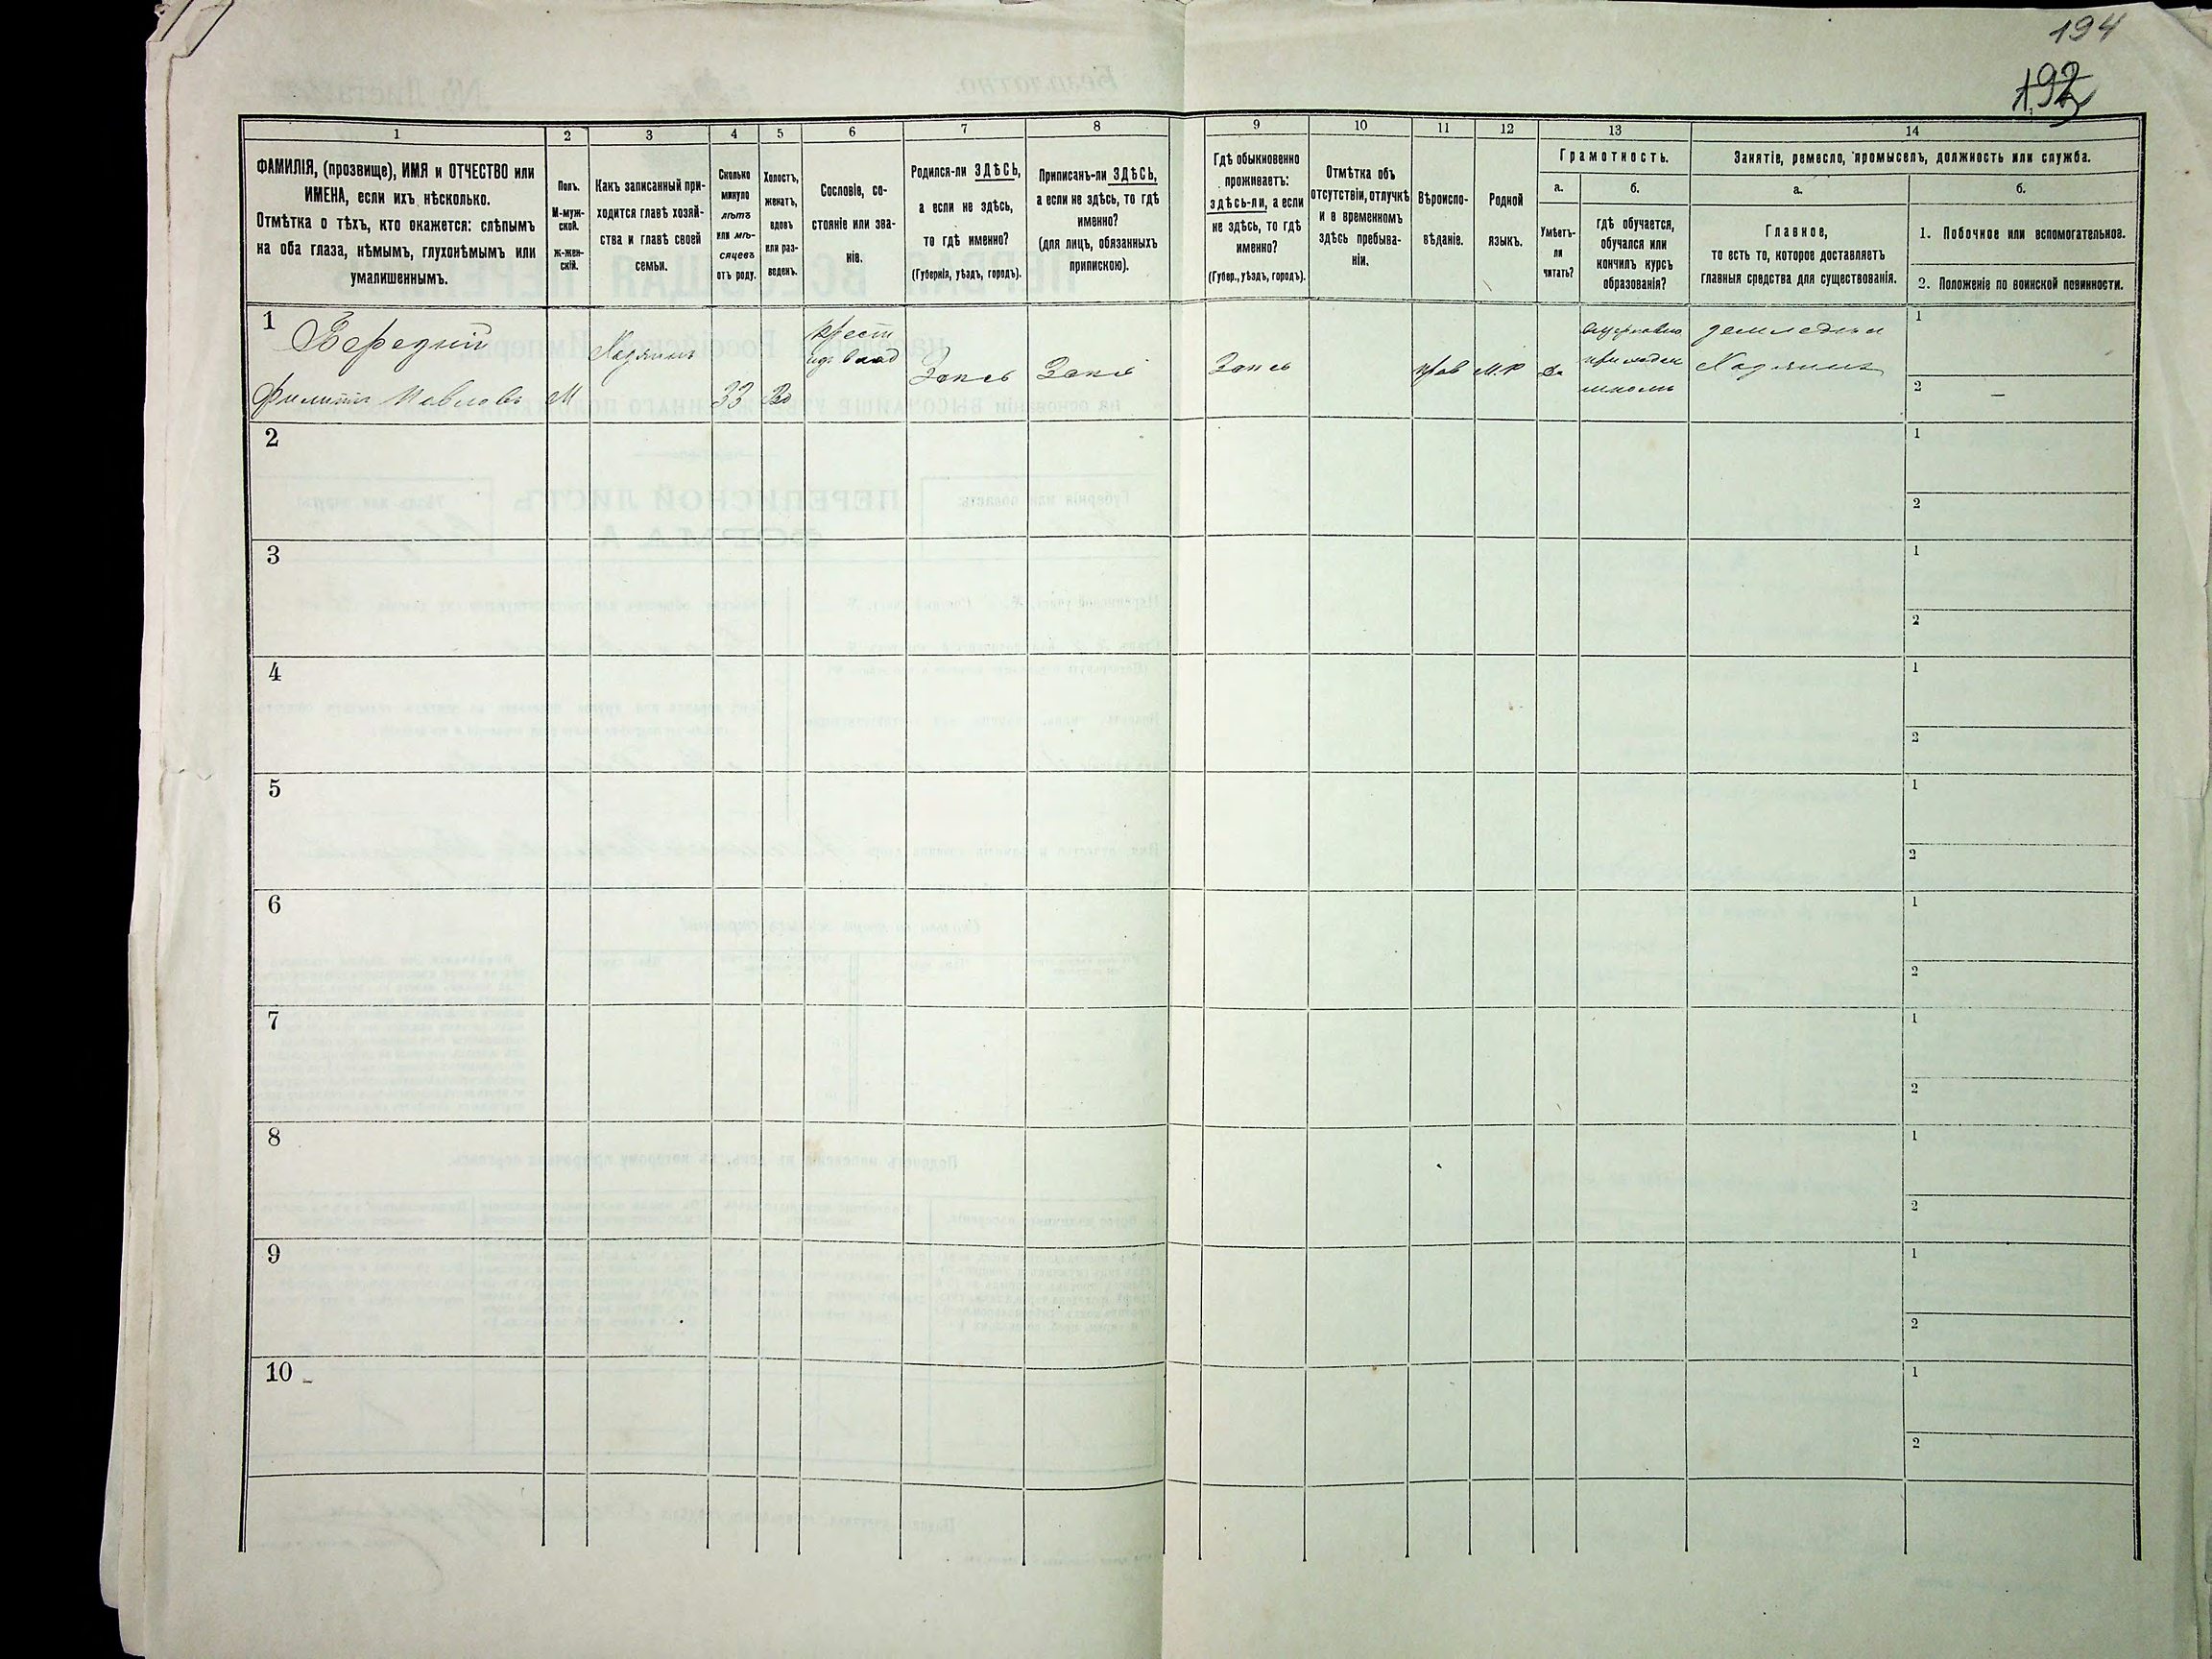 194
193
1
2
3
4
5
6
7
8
9
10
11
12
13
14
ФАМИЛІЯ, (прозвище), ИМЯ и ОТЧЕСТВО или
ИМЕНА, если ихъ нѣсколько.
Отмѣтка о тѣхъ, кто окажется: слѣпымъ
на оба глаза, нѣмымъ, глухонѣмымъ или
умалишеннымъ.
Полъ.
М-муж-
ской.
ж-жен-
скій.
Какъ записанный при-
ходится главѣ хозяй-
ства и главѣ своей
семьи.
Сколько
минуло
лѣтъ
или мѣ-
сяцевъ
отъ роду.
Холостъ,
женатъ,
вдовъ
или раз-
веденъ.
Сословіе, со-
стояніе или зва-
ніе.
Родился-ли ЗДѢСЬ,
а если не здѣсь,
то гдѣ именно?
(Губернія, уѣздъ, городъ).
Приписанъ-ли ЗДѢСЬ,
а если не здѣсь, то гдѣ
именно?
(для лицъ, обязанныхъ
припискою).
Гдѣ обыкновенно
проживаетъ:
здѣсь-ли, а если
не здѣсь, то гдѣ
именно?
(Губер., уѣздъ, городъ).
Отмѣтка объ
отсутствіи, отлучкѣ
и о временномъ
здѣсь пребыва-
ніи.
Вѣроиспо-
вѣданіе.
Родной
языкъ.
Грамотность.
а.
б.
Умѣетъ-
ли
читать?
гдѣ обучается,
обучался или
кончилъ курсъ
образованія?
Занятіе, ремесло, промыселъ, должность или служба.
а.
б.
Главное,
то есть то, которое доставляетъ
главныя средства для существованія.
1. Побочное или вспомогательное.
2. Положеніе по воинской повинности.
1
Филиппъ Павловъ
М
Хозяинъ
33
Вд
крест
изъ влад
Здѣсь
Здѣсь
Здѣсь
прав
М.Р
Да
школѣ
земледѣл
Хозяинъ
1
2 –
2
1
2
3
1
2
4
1
2
5
1
2
6
1
2
7
1
2
8
1
2
9
1
2
10
1
2